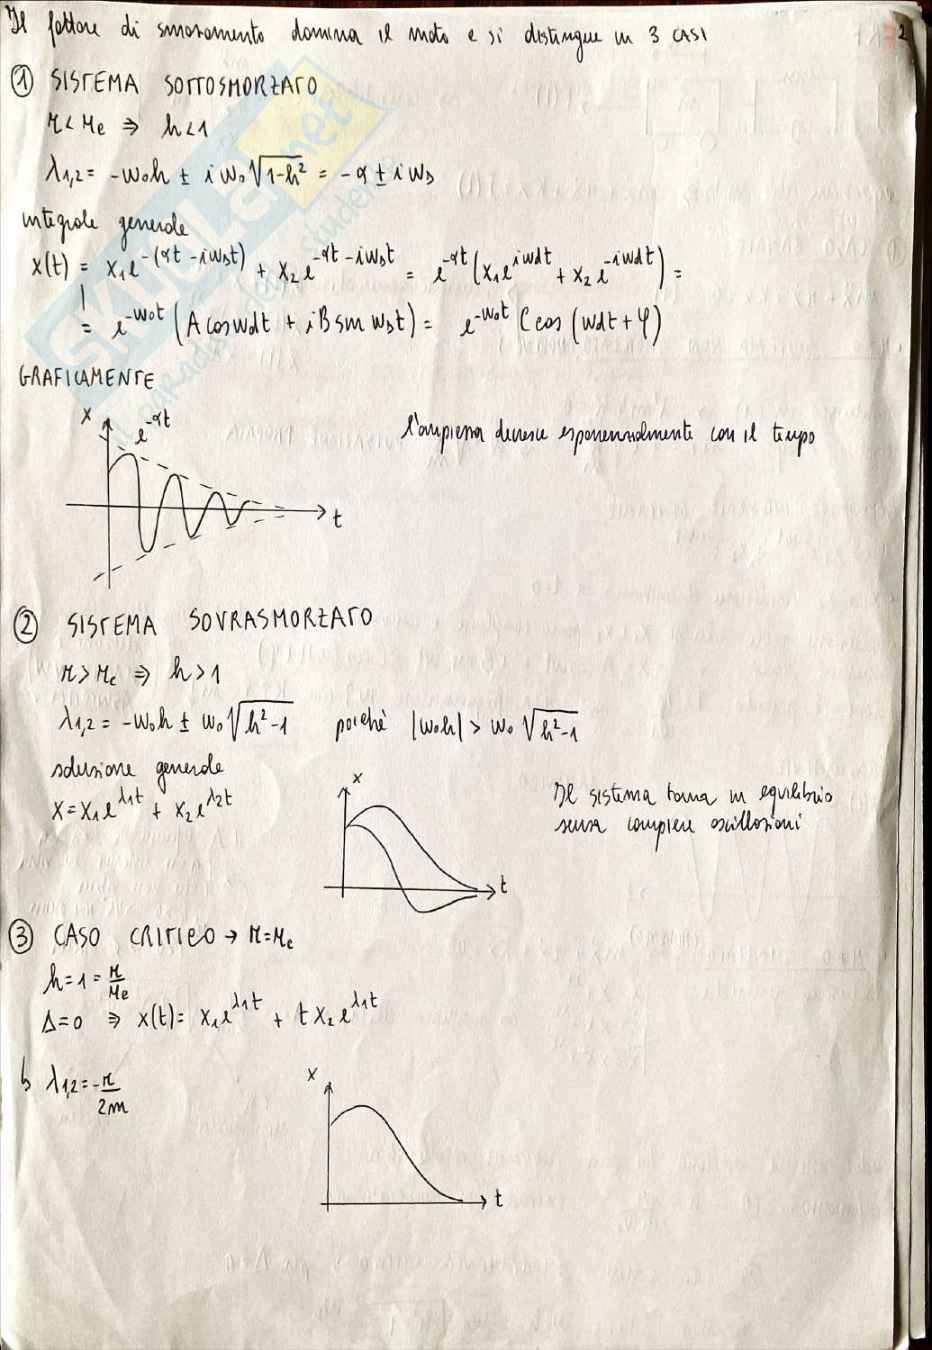 Il fattore di smorzamento domina il moto e si distingue in 3 CASI
2
① SISTEMA SOTTOSMORZATO
r < rc ⇒ h < 1
λ1,2 = -ω0h ± iω0√(1-h²) = -α ± iωD
integrale generale
x(t) = x1e^-(αt - iωDt) + x2e^-αt - iωDt = e^-αt (x1e^iωdt + x2e^-iωdt) =
= e^-ω0t (A cos ωdt + iB sin ωDt) = e^-ω0t C cos (ωdt + φ)
GRAFICAMENTE
x
e^-αt
l'ampiezza decresce esponenzialmente con il tempo
t
② SISTEMA SOVRASMORZATO
r > rc ⇒ h > 1
λ1,2 = -ω0h ± ω0√(h²-1) poichè |ω0h| > ω0√(h²-1)
soluzione generale
x = x1e^λ1t + x2e^λ2t
x
t
Il sistema torna in equilibrio
senza compiere oscillazioni
③ CASO CRITICO → r = rc
h = 1 = r/rc
Δ = 0 ⇒ x(t) = x1e^λ1t + t x2e^λ1t
↳ λ1,2 = -r/2m
x
t
SKUOLA.net
il paradiso dello studente